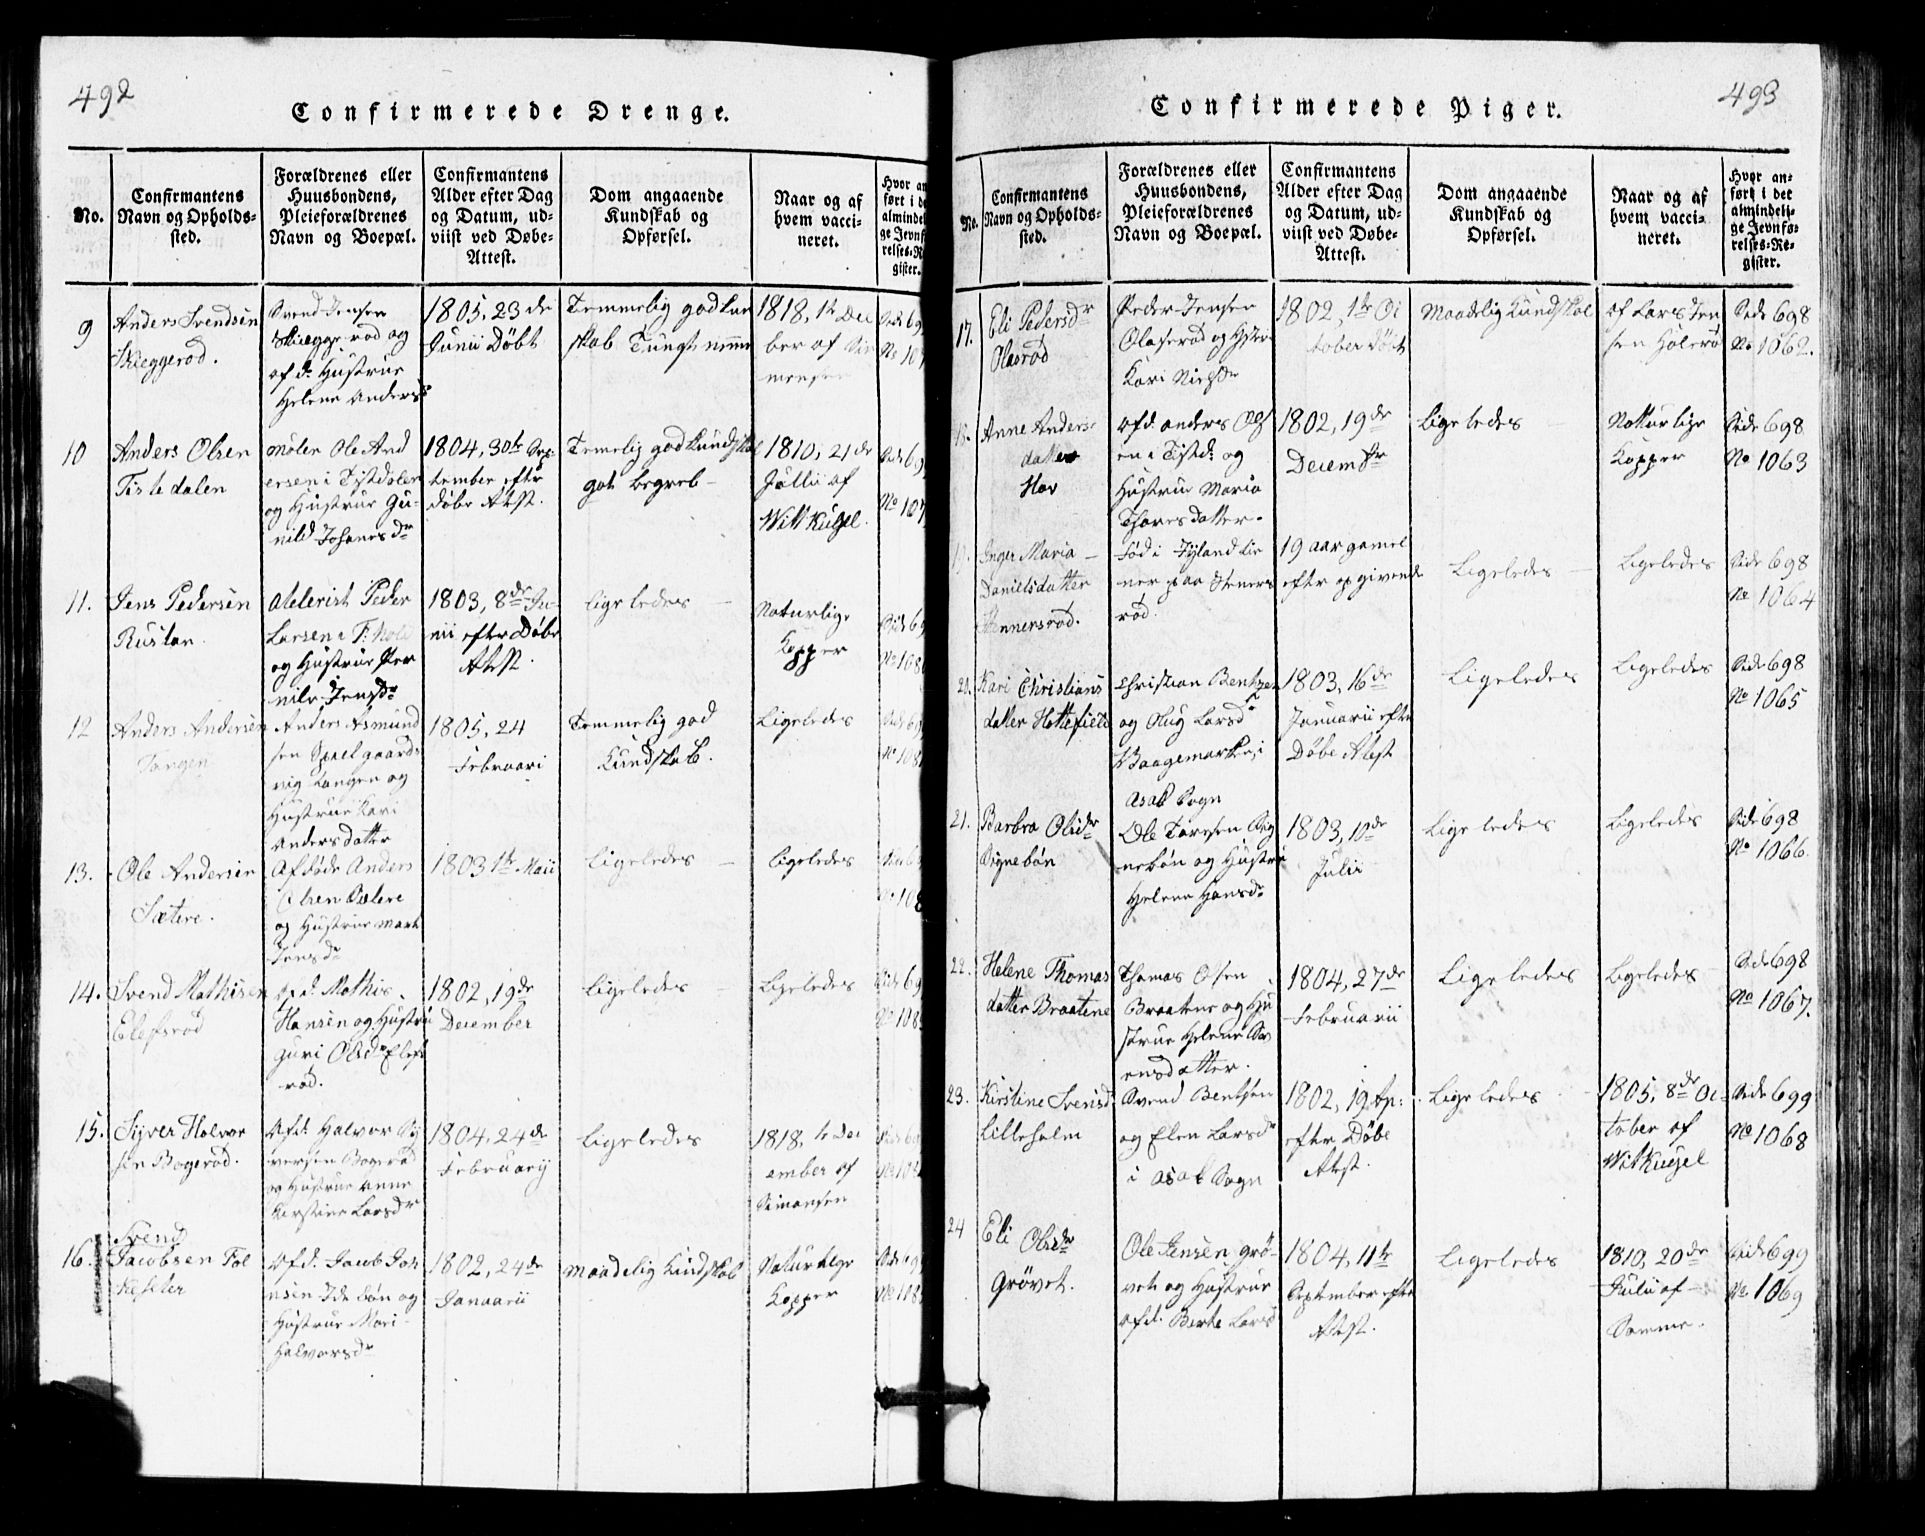 492
Confirmerede Drenge.
No.
Confirmantens
Navn og Opholds-
sted.
Forældrenes eller
Huusbondens,
Pleieforældrenes
Navn og Boepæl.
Confirmantens
Alder efter Dag
og Datum, ud-
viist ved Døbe-
Attest.
Dom angaaende
Kundskab og
Opførsel.
Naar og af
hvem vacci-
neret.
9
Anders Svendsen
Skieggerød.
Svend Jensen
Skieggerød og
afd. Hustrue
Helene Andersd
1805, 23de
Junii Døbt
Temmelig god Kun
skab Tungt nemme
1818, 1te De
ber af Si
monsen
10
Anders Olsen
Tistedalen
Møler Ole And
ersen i Tistdalen
og Hustrue Gu-
nild Johansdr
1804, 30te Sep-
tember eftr
Døbe Atest.
Temelig god Kundskab
got begreb
1810, 21de
Jullii af
Wittkugel.
11.
Jens Pedersen
Larsen i
og Hustrue Per
nile Jensdr
1803, 8de Ju-
nii eftr Døbe
Atest.
ligeledes
Naturlige
Kopper
12
Anders Andersen
Tangen
Anders Asmund
sen
vig Tangen og
Hustrue Kari
Andersdatter
1805, 24
Februari
Temmelig god
Kundskab.
Ligeledes
13.
Ole Andersen
Sætere.
Afdøde Anders
Olsen Sætere
og Hustrue
Jensdr
1803 1te Maii
Ligeledes
ligeledes
14.
Svend Mathisen
Elefsrød
afd. Mathis
Hansen og Hustru
Guri Olsdr Elefs
rød.
1802, 19de
December
Ligeledes
Ligeledes
15.
Syver Halvor
sen Bogerød.
Afd. Halvor Sy
versen Bogerød
og Hustrue Anne
Kirstine Larsdr
1804, 24de
Februarij
Ligeledes
1818, 1te De
cember af
Simonsen
16.
Svend
Jacobsen
Afd. Jacob Joh
nsen Idebøn og
Hustrue Mari
Halvorsdr
1802, 24de
Januarii
Maadelig Kundskab
Naturlige
Kopper
493
Confirmerede Piger.
No.
Confirmantens
Navn og Opholds-
sted.
Forældrenes eller
Huusbondens,
Pleieforældrenes
Navn og Boepæl.
Confirmantens
Alder efter Dag
og Datum, ud-
viist ved Døbe-
Attest.
Dom angaaende
Kundskab og
Opførsel.
Naar og af
hvem vacci-
neret.
Hvor an-
ført i det
almindeli-
ge Jevnfø-
relses-Re-
gister.
17.
Eli Pedersdr
Olasrød
Peder Jensen
Olaserød og
Kari Nielsdr
1802, 1te Oc
tober Døbt
Maadelig Kundskab
af Lars Jen
sen Holerø
Side 698
No 1062.
18.
Anne Anders
datter
Hov
Afd. Anders Ols
en i Tistd. og
Hustrue Maria
Tharesdatter.
1802, 19de
Decembr
Ligeledes
Natturlige
Kopper
Side 698
No 1063
19.
Inger Maria
Danielsdatter
Stennersrød.
Fød i Jylland tie
ner paa Steners
rød.
19 aar gamel
eftr opgivende
Ligeledes
Ligeledes
Side 698
No 1064
20.
Kari Christians
datter
Christian Bentzen
og Olug Larsdr
Baagemarken i
Asak Sogn
1803, 16de
Januarii eftr
Døbe Atest
Ligeledes
Ligeledes
Side 698
No 1065
21.
Barbra Olsdr
Signebøn
Ole Taresen Sig
nebøn og Hustru
Helene Hansdr
1803, 10de
Julii
Ligeledes
Ligeledes
Side 698
No 1066.
22.
Helene Thomas
datter Braatene
Thomas Olsen
Braatene og Hu
strue Helene Sv
ensdatter.
1804, 27de
Februarii
Ligeledes
Ligeledes
Side 698
No 1067.
23.
Kirstine Svensd
Lilleholm
Svend Bentsen
og Elen Larsdr
i Asak Sogn
1802, 19 Ap:
eftr Døbe
Atest.
Ligeledes
1805, 8de Oc-
tober af
Witkugel
Side 699
No 1068
24
Eli Olsdr
Grøvet.
Ole Jensen Grø-
vet og Hustrue
afd. Berte Larsd
1804, 11te
September eftr
Atest.
Ligeledes
1810, 20de
Julii af
Samme.
Side 699
No. 1069